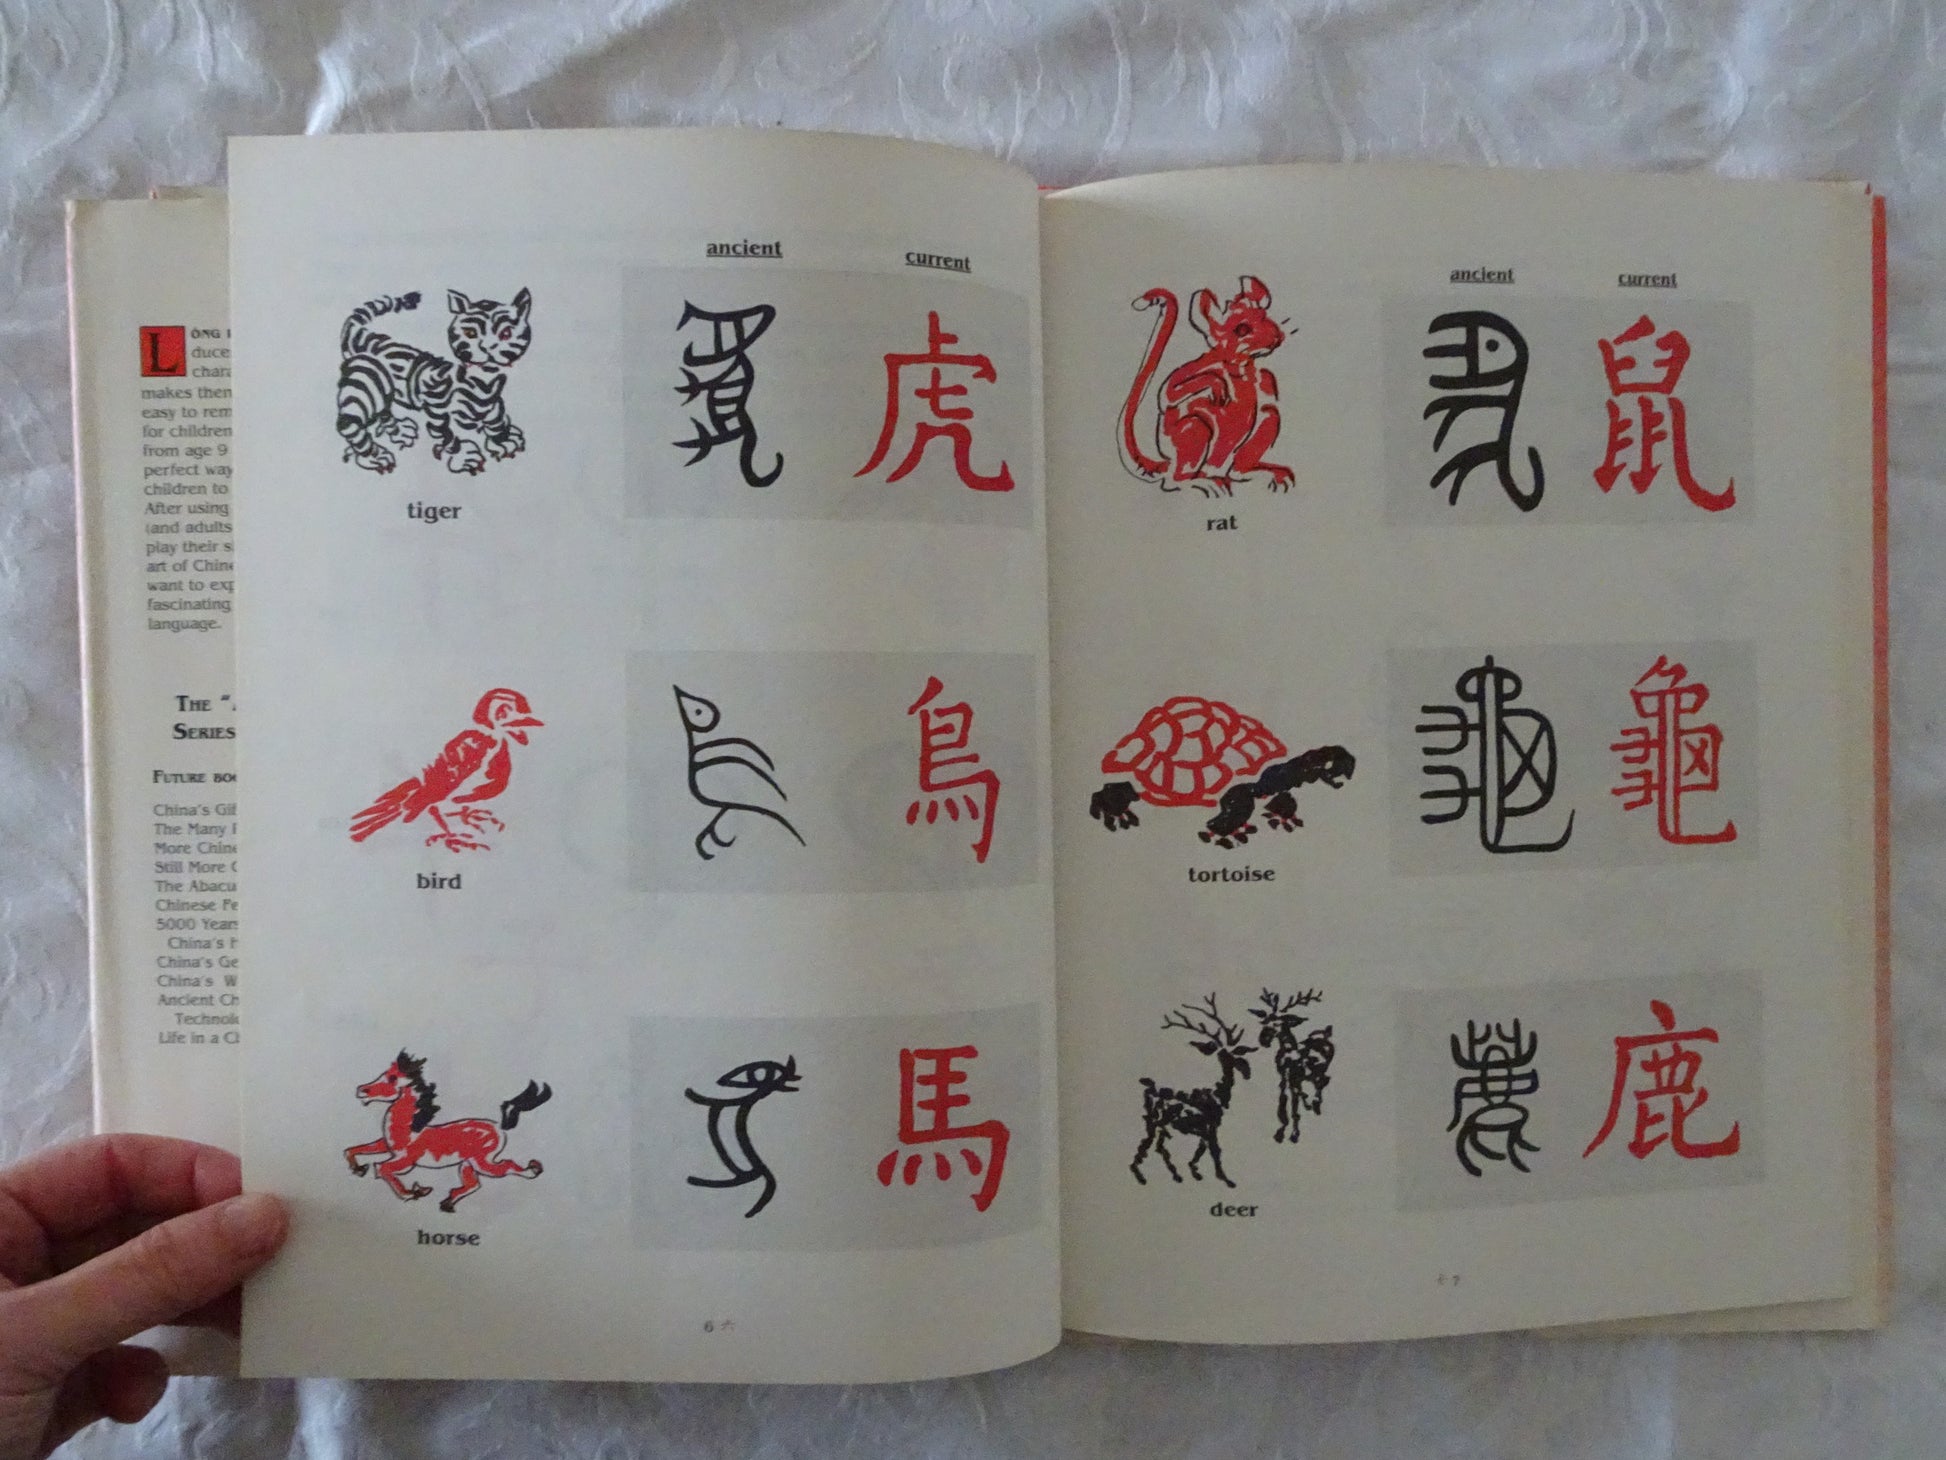 L ONG
duce
makes then
easy to rem
for children
from age 9
perfect way
children to
After using
(and adults
play their s
art of Chin
want to exp
fascinating
language.
THE "
SERIES
FUTURE
China's
The Many
More
Still More
The Abacu
Chinese
5000 Years
China's
China's
China's W
Ancient
Life in a
ancient current
虎
tiger
鳥
bird
馬
horse
6 六
ancient current
鼠
rat
龜
tortoise
鹿
deer
七 7